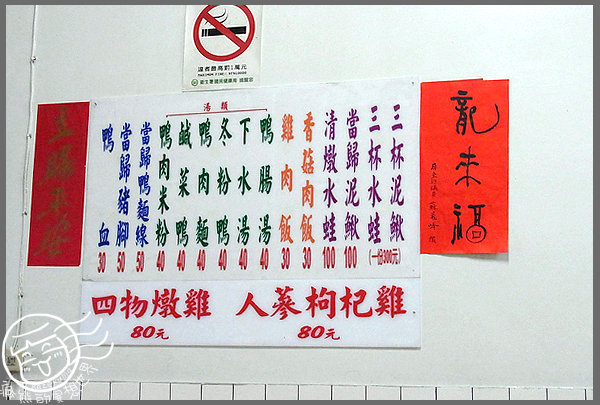 違者最高罰1萬元
龍來福
湯類
三杯泥鰍
三杯水蛙
(一份300元)
當歸泥鰍 100
清燉水蛙 100
香菇肉飯 30
雞肉飯 30
鴨腸湯 40
下水湯 40
冬粉鴨 40
鴨肉麵 40
鹹菜鴨 40
鴨肉米粉 40
當歸鴨麵線 50
當歸豬腳 50
鴨血 30
四物燉雞 人蔘枸杞雞
80元 80元